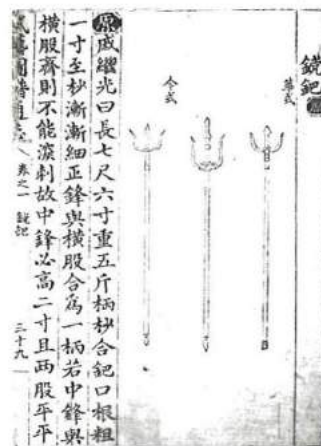 鎲鈀
華式
今式
原戚繼光曰長七尺六寸重五斤柄杪合鈀口根粗
一寸至杪漸漸細正鋒與橫股合爲一柄若中鋒與
橫股齊則不能深刺故中鋒必高二寸且兩股平平
武藝圖譜通志 卷之一 鎲鈀 三十九